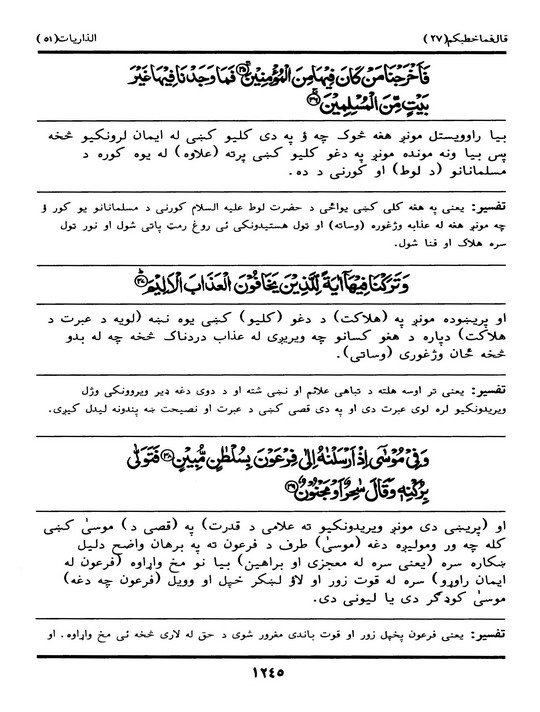 قال فما خطبكم (٢٧) الذاريات (٥١)
فَأَخْرَجْنَا مَنْ كَانَ فِيهَا مِنَ الْمُؤْمِنِينَ ﴿٣٥﴾ فَمَا وَجَدْنَا فِيهَا غَيْرَ
بَيْتٍ مِّنَ الْمُسْلِمِينَ ﴿٣٦﴾
بيا راوويستل مونږ هغه څوک چه ؤ په دی کليو کښی له ايمان لرونکيو څخه
پس بيا ونه مونده مونږ په دغو کليو کښی پرته (علاوه) له يوه کوره د
مسلمانانو (د لوط) او کورنی د ده.
تفسير: يعنی په هغه کلی کښی يواځی د حضرت لوط عليه السلام کورنی د مسلمانانو يو کور ؤ
چه مونږ هغه له عذابه وژغوره (وساته) او تول هستيدونکی ئی روغ رمټ پاتی شول او نور تول
سره هلاک او فنا شول.
وَتَرَكْنَا فِيهَا آيَةً لِّلَّذِينَ يَخَافُونَ الْعَذَابَ الْأَلِيمَ ﴿٣٧﴾
او پريښوده مونږ په (هلاکت) د دغو (کليو) کښی يوه نښه (لويه د عبرت د
هلاکت) دپاره د هغو کسانو چه ويريږی له عذاب دردناک څخه چه له بدو
څخه ځان وژغوری (وساتی).
تفسير: يعنی تر اوسه هلته د تباهی علائم او نښی شته او د دوی دغه ډير ويروونکی وژل
ويريدونکيو لره لوی عبرت دی او په دی قصی کښی د عبرت او نصيحت ښه پندونه ليدل کيږی.
وَفِي مُوسَى إِذْ أَرْسَلْنَاهُ إِلَى فِرْعَوْنَ بِسُلْطَانٍ مُّبِينٍ ﴿٣٨﴾ فَتَوَلَّى
بِرُكْنِهِ وَقَالَ سَاحِرٌ أَوْ مَجْنُونٌ ﴿٣٩﴾
او (پريښی دی مونږ ويريدونکيو ته علامی د قدرت) په (قصی د) موسیٰ کښی
کله چه ور وموليږه دغه (موسیٰ) طرف د فرعون ته په برهان واضح دليل
ښکاره سره (يعنی سره له معجزی او براهين) بيا نو مخ وااړاوه (فرعون له
ايمان راوړو) سره له قوت زور او لاؤ لښکر خپل او وويل (فرعون چه دغه)
موسیٰ کوډګر دی يا ليونی دی.
تفسير: يعنی فرعون پخپل زور او قوت باندی مغرور شوی د حق له لاری څخه ئی مخ واړاوه. او
١٢٤٥